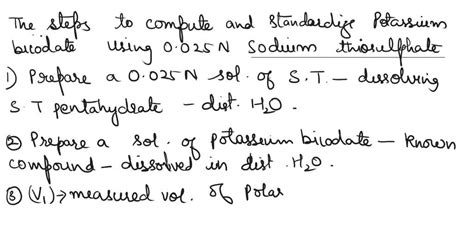 The steps to compute and standardize Potassium
biiodate using 0.025 N Sodium thiosulphate
1) Prepare a 0.025 N sol. of S.T. – dissolving
S.T pentahydrate – dist. H2O.
② Prepare a sol. of potassium biiodate – known
compound – dissolved in dist. H2O.
③ (V1) → measured vol. of Potas